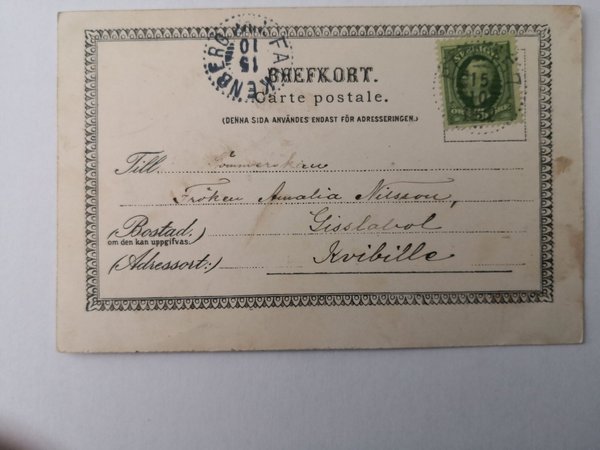 FALKENBERG
15
10
BREFKORT.
Carte postale.
(DENNA SIDA ANVÄNDES ENDAST FÖR ADRESSERINGEN.)
15
10
Till Sömmerskan
Fröken Amalia Nilsson,
(Bostad:) Gisslabol
om den kan uppgifvas.
(Adressort:) Kvibille